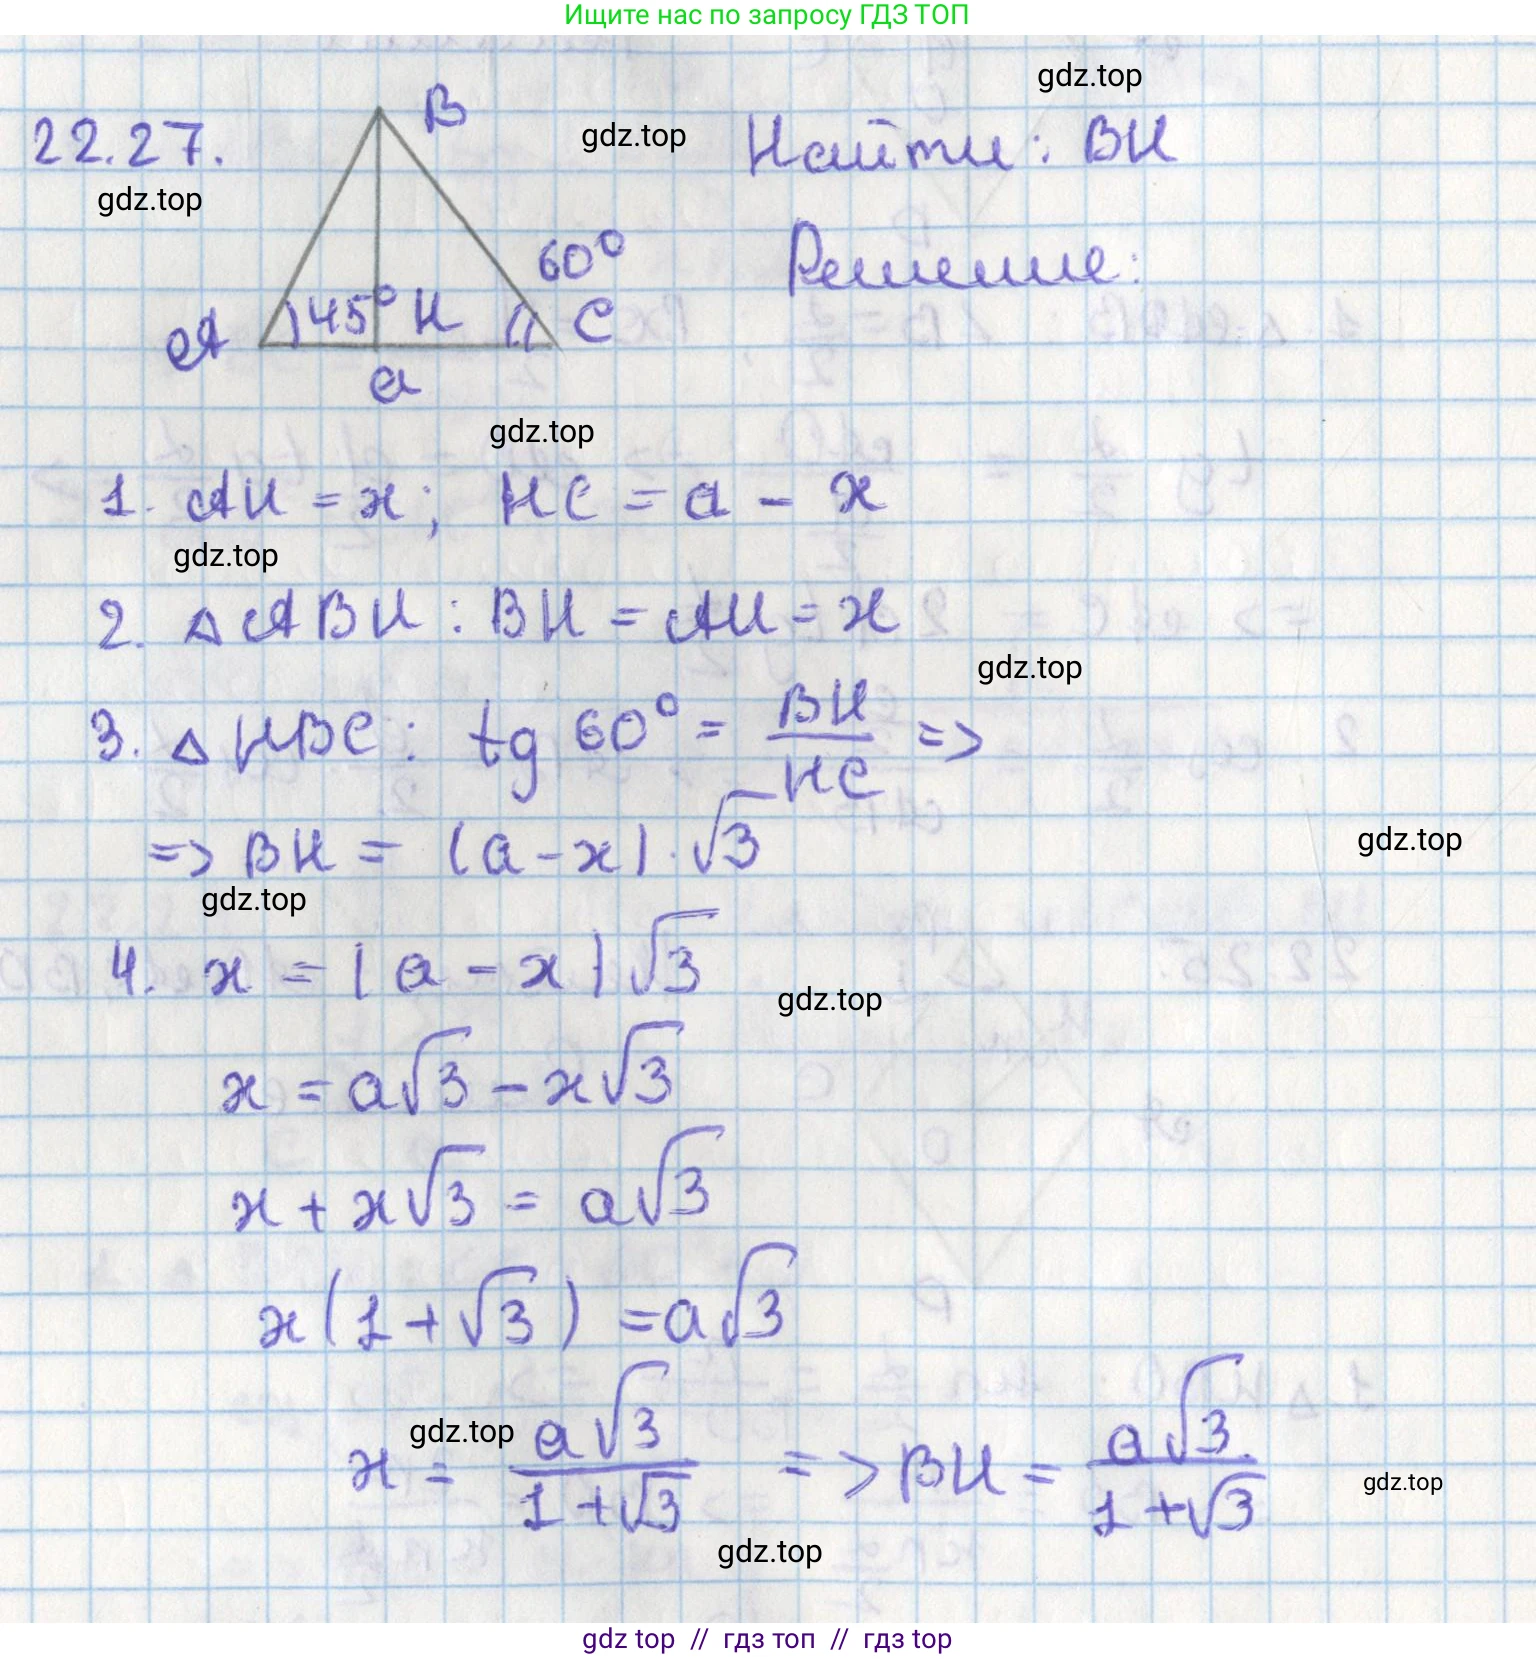 Ищите нас по запросу ГДЗ ТОП
gdz.top
22.27.
B
gdz.top
Найти: BH
gdz.top
60°
Решение:
A
45°
H
C
a
gdz.top
1. AH = x; HC = a - x
gdz.top
2. △ABH: BH = AH = x
gdz.top
3. △HBC: tg 60° = BH/HC =>
=> BH = (a-x)·√3
gdz.top
gdz.top
4. x = (a - x)√3
gdz.top
x = a√3 - x√3
x + x√3 = a√3
x(1+√3) = a√3
gdz.top
x = a√3/1+√3 => BH = a√3/1+√3
gdz.top
gdz.top
gdz top // гдз топ // гдз top